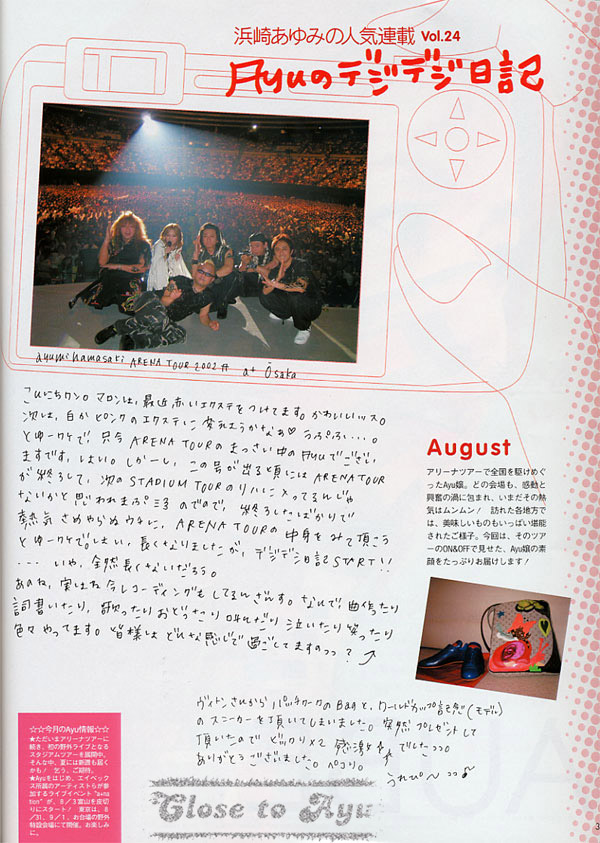 浜崎あゆみの人気連載 Vol.24
Ayuのデジデジ日記
ayumi hamasaki ARENA TOUR 2002 A at Ōsaka
こんにちワン。マロンは、最近、赤いエクステをつけてます。かわいいッス。
次は、白か ピンクの エクステに 変えようかなぁ♡ うぷぷぷ…。
とゆーワケで、只今 ARENA TOURの まっさい中の Ayuでござい
ますです。はい。しかーし、この号が 出る頃には ARENA TOUR
が終了して、次の STADIUM TOURの リハに 入ってるんじゃ
ないかと 思われまぷ 3 ので ので、終了したばかりで
熱気 さめやらぬ ウチに、ARENA TOURの 中身を みて頂こう
とゆーワケでした。長くなりましたが、デジデジ日記START!!
… いや、全然長くないだろう。
あのね、実はね 今 レコーディングも してるんざんす。なんで、曲作ったり
詞書いたり、歌ったり おどったり 叫んだり 泣いたり 笑ったり
色々 やってます。皆様は どんな感じで 過ごしてますのっっ?
August
アリーナツアーで全国を駆けめぐ
ったAyu嬢。どの会場も、感動と
興奮の渦に包まれ、いまだその熱
気はムンムン! 訪れた各地方で
は、美味しいものもいっぱい堪能
されたご様子。今回は、そのツア
ーのON&OFFで見せた、Ayu嬢の素
顔をたっぷりお届けします!
ヴィトンさんから パッチワークの Bagと、ワールドカップ記念(モデル)
の スニーカーを 頂いてしまいました。突然 プレゼントして
頂いたので ビックリ×2 感激 でしたっっ。
ありがとう ございました。ペコリ。
うれぴ〜っっ♪
☆☆今月のAyu情報☆☆
★ただいまアリーナツアーに
続き、初の野外ライブとなる
スタジアムツアーを展開中。
そんな中、夏には新譜も届く
かも! 乞う、ご期待。
★Ayuをはじめ、エイベック
ス所属のアーティストらが参
加するライブイベント“a-na
tion”が、8/3富山を皮切
りにスタート! 東京は、8
/31、9/1、お台場の野外
特設会場にて開催。お楽しみ
に。
Close to Ayu
3